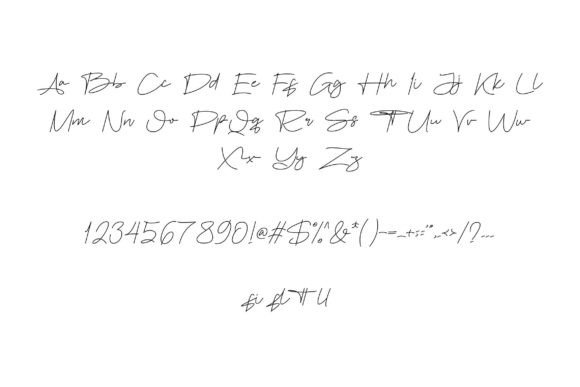 Aa Bb Cc Dd Ee Ff Gg Hh Ii Jj Kk Ll
Mm Nn Oo Pp Qq Rr Ss Tt Uu Vv Ww
Xx Yy Zz
1234567890!@#$%^&*()-=_+;:'",.<>/?...
fi fl Tt ll